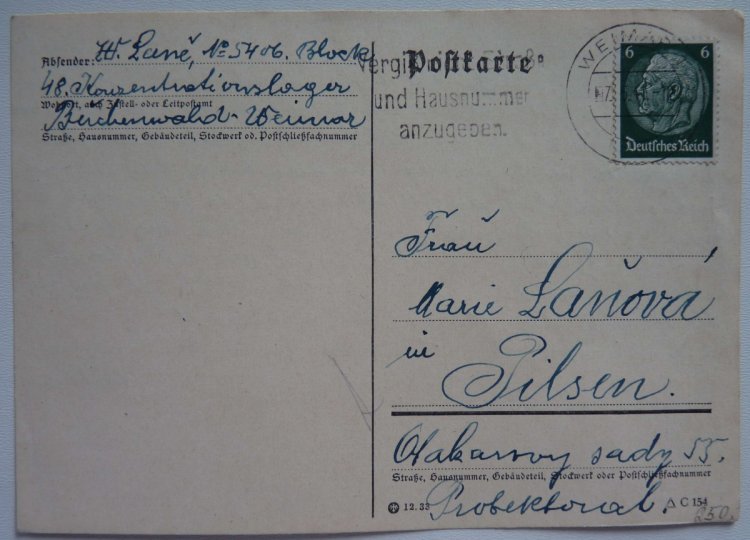 Absender: W. Laně, № 5406. Block
48. Konzentrationslager
Wohnort, auch Zustell- oder Leitpostamt
Buchenwald-Weimar
Straße, Hausnummer, Gebäudeteil, Stockwerk od. Postschließfachnummer
Postkarte
und Hausnummer
anzugeben.
WEIM
6 6
Deutsches Reich
Frau
Marie Laňová
in
Pilsen.
Otakarovy sady 55.
Straße, Hausnummer, Gebäudeteil, Stockwerk oder Postschließfachnummer
Protektorat.
12.33
C 154
250.